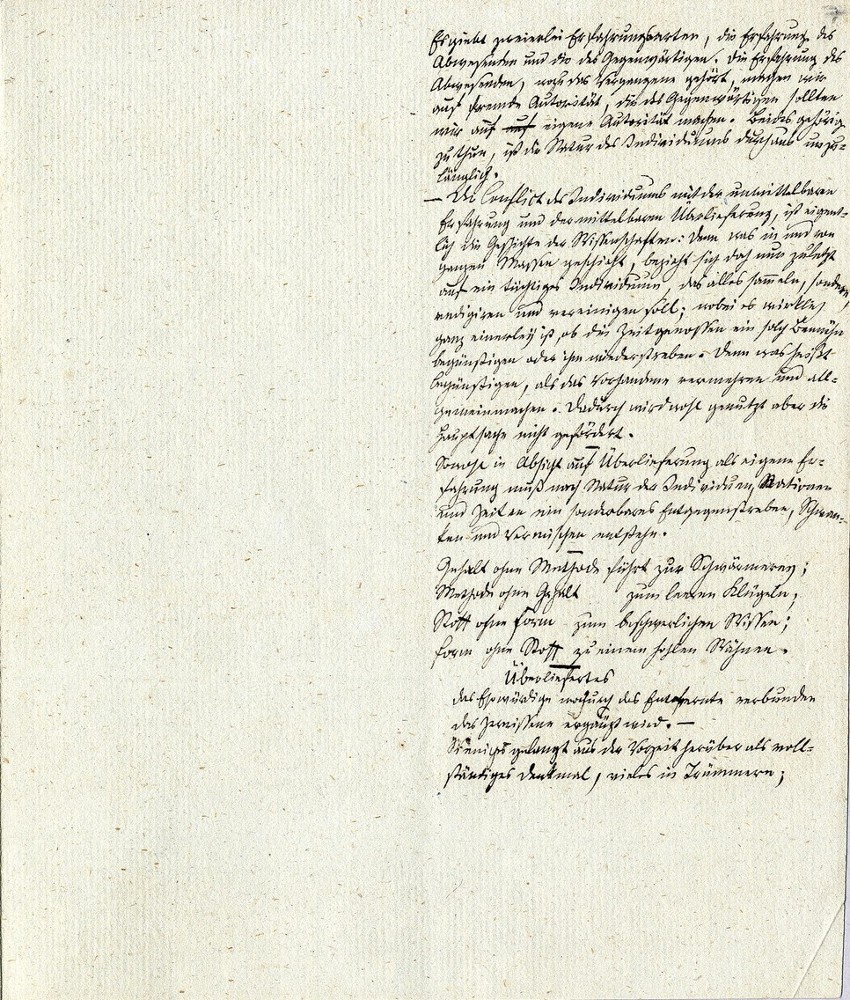 Es giebt zweierlei Erfahrungsarten, die Erfahrung des
Abwesenden und die des Gegenwärtigen. Die Erfahrung des
Abwesenden, wozu das Vergangene gehört, machen wir
auf fremde Autorität, die des Gegenwärtigen sollten
wir auf auf eigene Autorität machen. Beides gehörig
zu thun, ist die Natur des Individuums durchaus unzu=
länglich.
— Der Conflict des Individuums mit der unmittelbaren
Erfahrung und der mittelbaren Überlieferung, ist eigent=
lich die Geschichte der Wissenschaften: denn was in und von
ganzen Massen geschieht, bezieht sich doch nur zuletzt
auf ein tüchtiges Individuum, das alles sam̄eln, sondern,
redigiren und vereinigen soll; wobei es wirklich
ganz einerley ist, ob die Zeitgenossen ein solch Bemühn
begünstigen oder ihm widerstreben. Denn was heißt
begünstigen, als das Vorhandene vermehren und all=
gemeinmachen. Dadurch wird wohl genutzt aber die
Hauptsache nicht gefördert.
Sowohl in Absicht auf Überlieferung als eigene Er=
fahrung muß nach Natur der Individuen, Nationen
und Zeiten ein sonderbares Entgegenstreben, Schwan=
ken und Vermischen entstehn.
Gehalt ohne Methode führt zur Schwärmerey;
Methode ohne Gehalt zum leeren Klügeln;
Stoff ohne Form zum beschwerlichen Wissen;
Form ohne Stoff zu einem hohlen Wähnen.
Überliefertes
das Ehrwürdige wodurch das Entfernte verbunden
das Zerrissene ergänzt wird. —
Weniges gelangt aus der Vorzeit herüber als voll=
ständiges Denkmal, vieles in Trümmern;